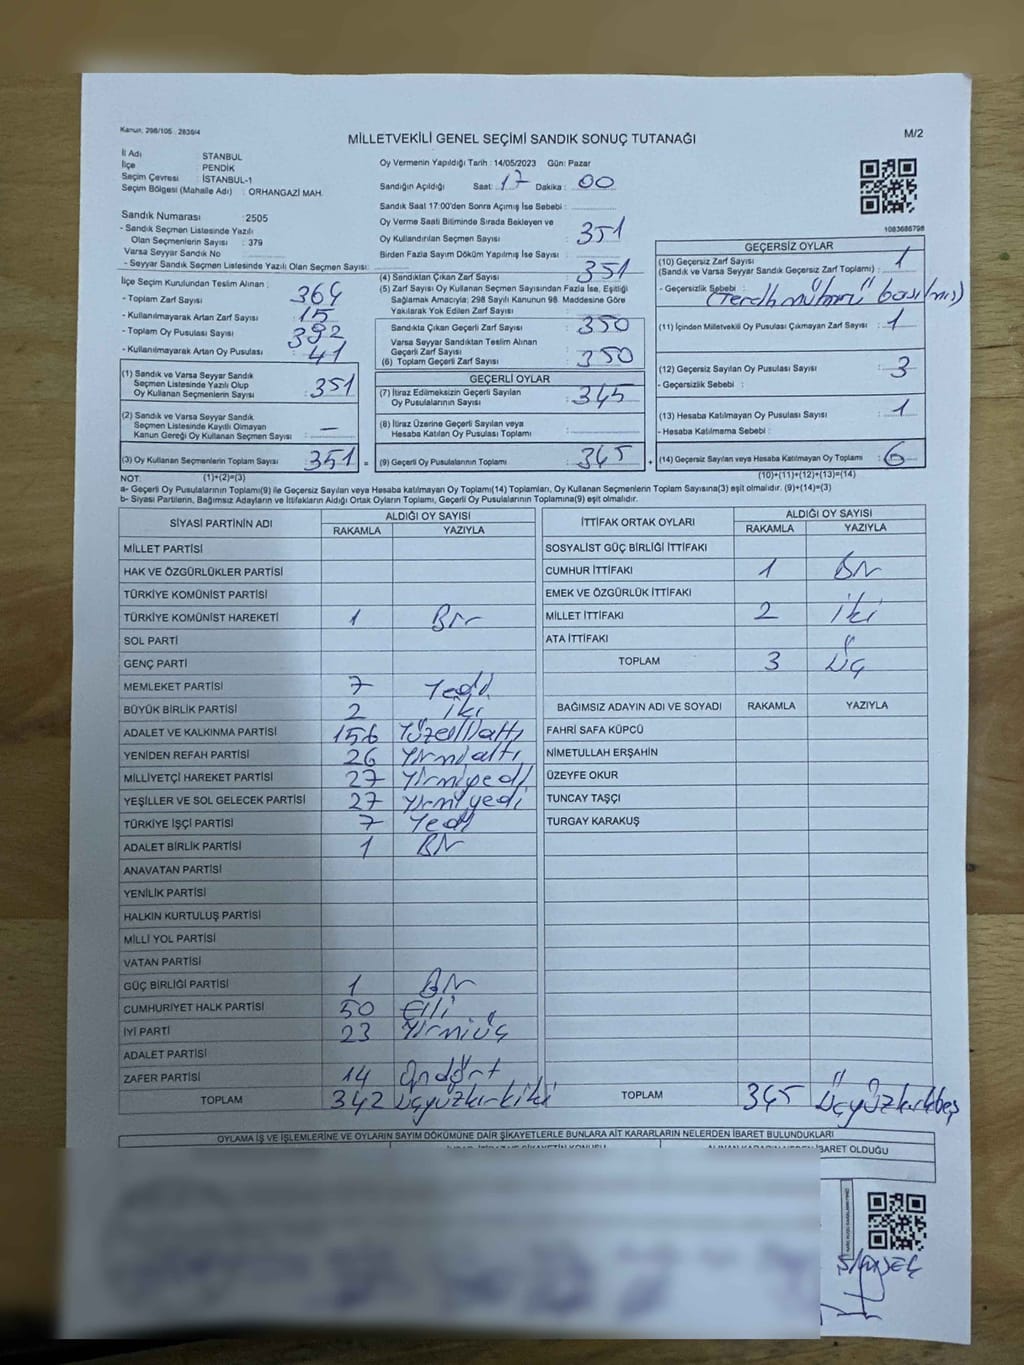 Kanun: 298/105 2839/4
MİLLETVEKİLİ GENEL SEÇİMİ SANDIK SONUÇ TUTANAĞI
M/2
İl Adı STANBUL
İlçe PENDİK
Seçim Çevresi İSTANBUL-1
Seçim Bölgesi (Mahalle Adı) : ORHANGAZİ MAH.
Sandık Numarası : 2505
- Sandık Seçmen Listesinde Yazılı
Olan Seçmenlerin Sayısı : 379
Varsa Seyyar Sandık No
- Seyyar Sandık Seçmen Listesinde Yazılı Olan Seçmen Sayısı:
İlçe Seçim Kurulundan Teslim Alınan :
- Toplam Zarf Sayısı 364
- Kullanılmayarak Artan Zarf Sayısı : 15
- Toplam Oy Pusulası Sayısı 392
- Kullanılmayarak Artan Oy Pusulası : 41
(1) Sandık ve Varsa Seyyar Sandık
Seçmen Listesinde Yazılı Olup
Oy Kullanan Seçmenlerin Sayısı : 351
(2) Sandık ve Varsa Seyyar Sandık
Seçmen Listesinde Kayıtlı Olmayan
Kanun Gereği Oy Kullanan Seçmen Sayısı : —
(3) Oy Kullanan Seçmenlerin Toplam Sayısı : 351 =
Oy Vermenin Yapıldığı Tarih : 14/05/2023 Gün: Pazar
Sandığın Açıldığı Saat: 17 Dakika : 00
Sandık Saat 17:00'den Sonra Açımış İse Sebebi :
Oy Verme Saati Bitiminde Sırada Bekleyen ve
Oy Kullandırılan Seçmen Sayısı : 351
Birden Fazla Sayım Döküm Yapılmış İse Sayısı:
(4) Sandıktan Çıkan Zarf Sayısı : 351
(5) Zarf Sayısı Oy Kullanan Seçmen Sayısından Fazla İse, Eşitliği
Sağlamak Amacıyla; 298 Sayılı Kanunun 98. Maddesine Göre
Yakılarak Yok Edilen Zarf Sayısı :
Sandıkta Çıkan Geçerli Zarf Sayısı : 350
Varsa Seyyar Sandıktan Teslim Alınan
Geçerli Zarf Sayısı
(6) Toplam Geçerli Zarf Sayısı : 350
GEÇERLİ OYLAR
(7) İtiraz Edilmeksizin Geçerli Sayılan
Oy Pusulalarının Sayısı : 345
(8) İtiraz Üzerine Geçerli Sayılan veya
Hesaba Katılan Oy Pusulası Toplamı :
(9) Geçerli Oy Pusulalarının Toplamı : 345 +
1083686798
GEÇERSİZ OYLAR
(10) Geçersiz Zarf Sayısı
(Sandık ve Varsa Seyyar Sandık Geçersiz Zarf Toplamı) : 1
- Geçersizlik Sebebi : (Tercih mührü basılmış)
(11) İçinden Milletvekili Oy Pusulası Çıkmayan Zarf Sayısı : 1
(12) Geçersiz Sayılan Oy Pusulası Sayısı : 3
- Geçersizlik Sebebi :
(13) Hesaba Katılmayan Oy Pusulası Sayısı : 1
- Hesaba Katılmama Sebebi :
(14) Geçersiz Sayılan veya Hesaba Katılmayan Oy Toplamı : 6
NOT: (1)+(2)=(3)
(10)+(11)+(12)+(13)=(14)
a- Geçerli Oy Pusulalarının Toplamı(9) ile Geçersiz Sayılan veya Hesaba katılmayan Oy Toplamı(14) Toplamları, Oy Kullanan Seçmenlerin Toplam Sayısına(3) eşit olmalıdır. (9)+(14)=(3)
b- Siyasi Partilerin, Bağımsız Adayların ve İttifakların Aldığı Ortak Oyların Toplamı, Geçerli Oy Pusulalarının Toplamına(9) eşit olmalıdır.
SİYASİ PARTİNİN ADI ALDIĞI OY SAYISI
RAKAMLA YAZIYLA
MİLLET PARTİSİ
HAK VE ÖZGÜRLÜKLER PARTİSİ
TÜRKİYE KOMÜNİST PARTİSİ
TÜRKİYE KOMÜNİST HAREKETİ 1 Bir
SOL PARTİ
GENÇ PARTİ
MEMLEKET PARTİSİ 7 Yedi
BÜYÜK BİRLİK PARTİSİ 2 iki
ADALET VE KALKINMA PARTİSİ 156 Yüzellialtı
YENİDEN REFAH PARTİSİ 26 Yirmialtı
MİLLİYETÇİ HAREKET PARTİSİ 27 Yirmiyedi
YEŞİLLER VE SOL GELECEK PARTİSİ 27 Yirmiyedi
TÜRKİYE İŞÇİ PARTİSİ 7 Yedi
ADALET BİRLİK PARTİSİ 1 Bir
ANAVATAN PARTİSİ
YENİLİK PARTİSİ
HALKIN KURTULUŞ PARTİSİ
MİLLİ YOL PARTİSİ
VATAN PARTİSİ
GÜÇ BİRLİĞİ PARTİSİ 1 Bir
CUMHURİYET HALK PARTİSİ 50 Elli
İYİ PARTİ 23 Yirmiüç
ADALET PARTİSİ
ZAFER PARTİSİ 14 Ondört
TOPLAM 342 üçyüzkırkiki
İTTİFAK ORTAK OYLARI ALDIĞI OY SAYISI
RAKAMLA YAZIYLA
SOSYALİST GÜÇ BİRLİĞİ İTTİFAKI
CUMHUR İTTİFAKI 1 Bir
EMEK VE ÖZGÜRLÜK İTTİFAKI
MİLLET İTTİFAKI 2 iki
ATA İTTİFAKI
TOPLAM 3 Üç
BAĞIMSIZ ADAYIN ADI VE SOYADI RAKAMLA YAZIYLA
FAHRİ SAFA KÜPCÜ
NİMETULLAH ERŞAHİN
ÜZEYFE OKUR
TUNCAY TAŞÇI
TURGAY KARAKUŞ
TOPLAM 345 Üçyüzkırkbeş
OYLAMA İŞ VE İŞLEMLERİNE VE OYLARIN SAYIM DÖKÜMÜNE DAİR ŞİKAYETLERLE BUNLARA AİT KARARLARIN NELERDEN İBARET BULUNDUKLARI
İBARET OLDUĞU